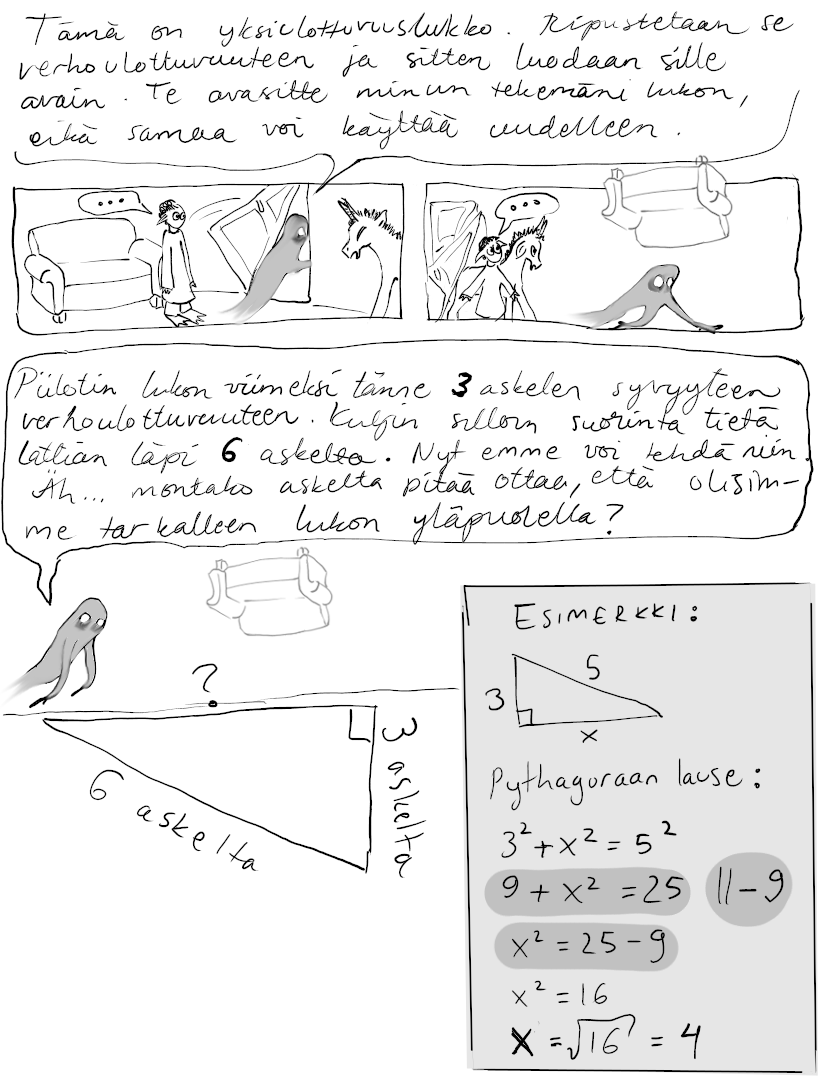 Tämä on yksiulottuvuuslukko. Ripustetaan se
verhoulottuvuuteen ja sitten luodaan sille
avain. Te avasitte minun tekemäni lukon,
eikä samaa voi käyttää uudelleen.
...
...
Piilotin lukon viimeksi tänne 3 askelen syvyyteen
verhoulottuvuuteen. Kuljin silloin suorinta tietä
lattian läpi 6 askelta. Nyt emme voi tehdä niin.
Äh... montako askelta pitää ottaa, että olisim-
me tarkalleen lukon yläpuolella?
?
6 askelta
3 askelta
ESIMERKKI:
5
3
x
Pythagoraan lause:
3² + x² = 5²
9 + x² = 25 ||-9
x² = 25 - 9
x² = 16
x = √16 = 4